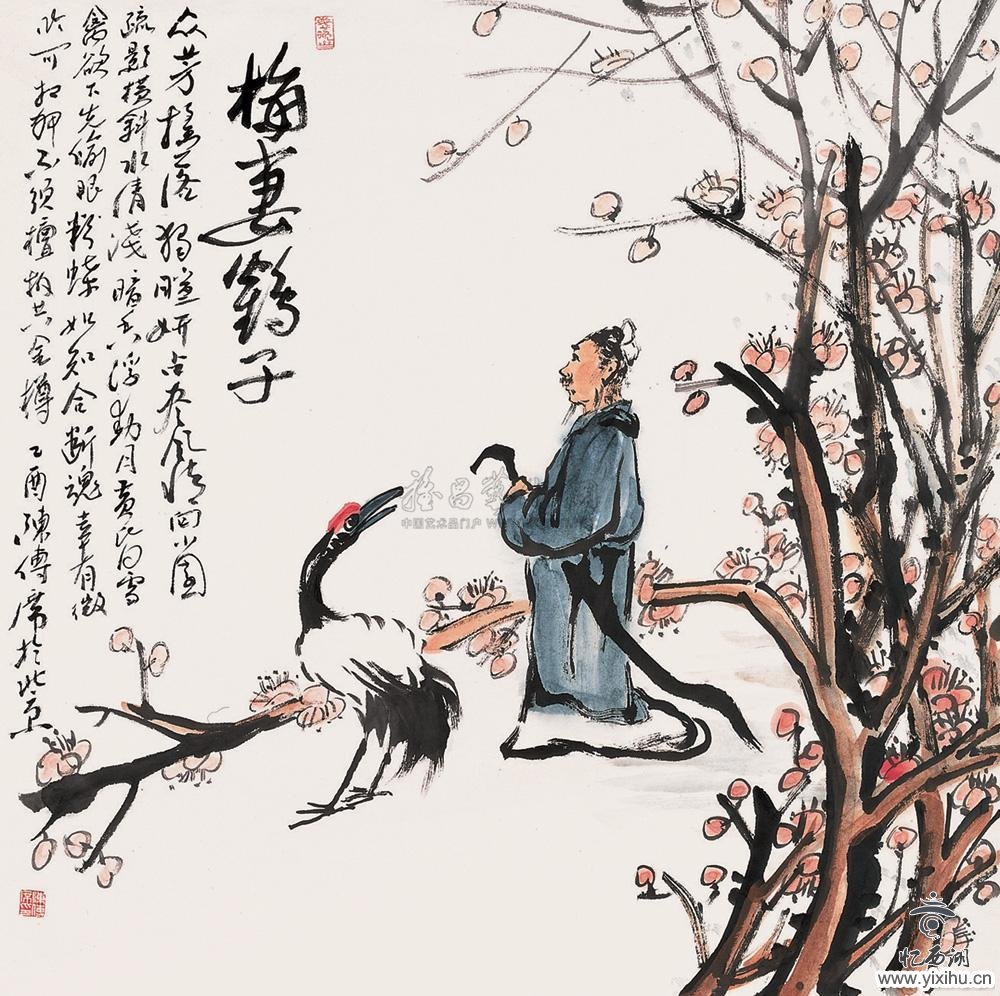 梅妻鶴子
众芳摇落獨暄妍占尽风情向小園
疏影橫斜水清淺暗香浮動月黄昏霜
禽欲下先偷眼粉蝶如知合断魂幸有微
吟可相狎不须檀板共金樽 乙酉陳傳席於北京
中国艺术品门户
忆西湖
www.yixihu.cn